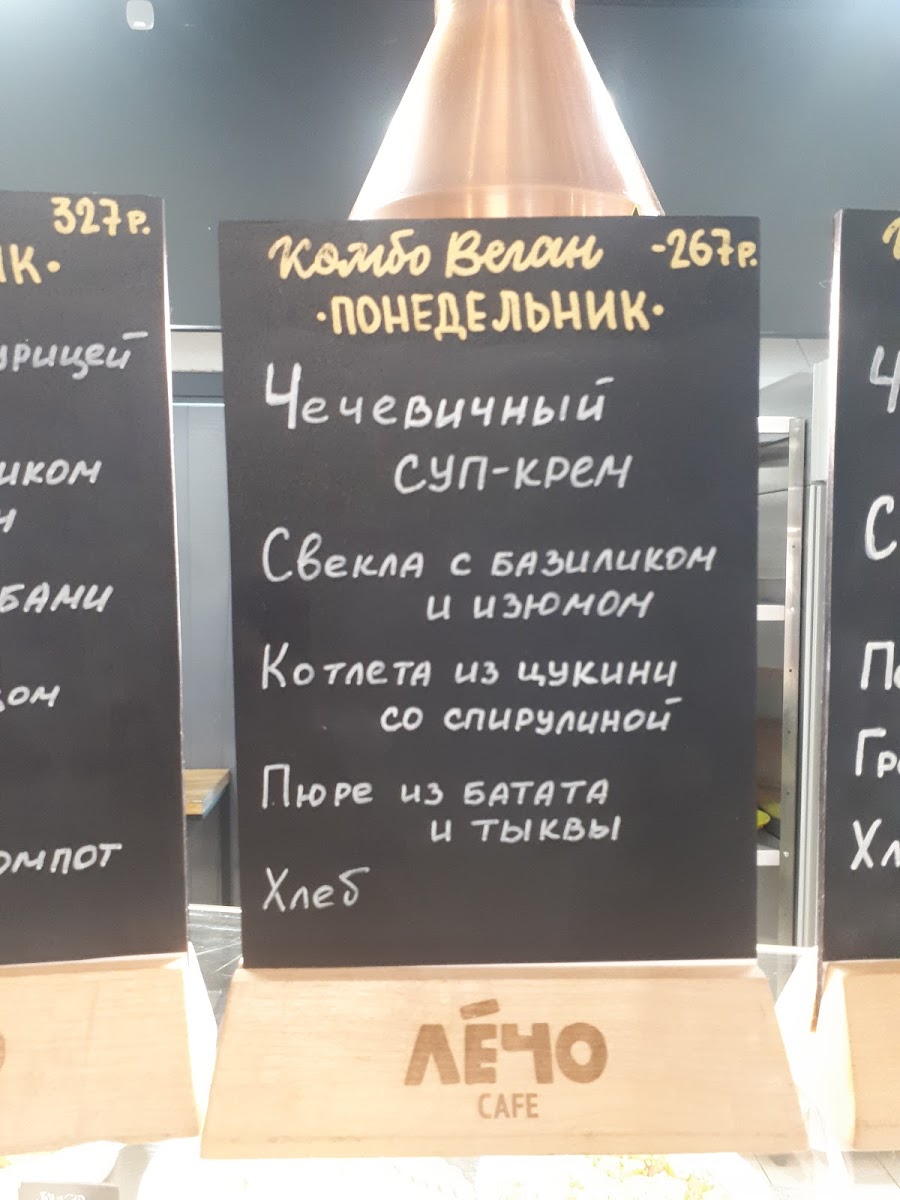 327р.
Комбо Веган -267р.
·ПОНЕДЕЛЬНИК·
Чечевичный
суп-крем
Свекла с базиликом
и изюмом
Котлета из цукини
со спирулиной
Пюре из батата
и тыквы
Хлеб
ЛЕЧО
CAFE